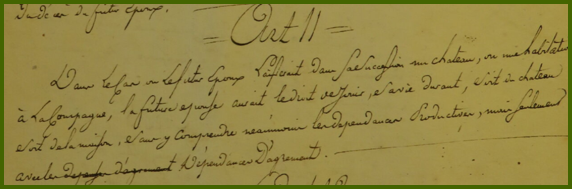 du décès du futur époux.
= Art 11 =
Dans le Cas où le futur Epoux laisserait dans sa succession un chateau, ou une habitation
à la Campagne, la future épouse aurait le droit de Jouir, sa vie durant, soit du chateau
soit de la maison, sans y Comprendre neanmoins les dependances Productives, mais seulement
avec les dependances d'agrement Dépendances D'agrement.